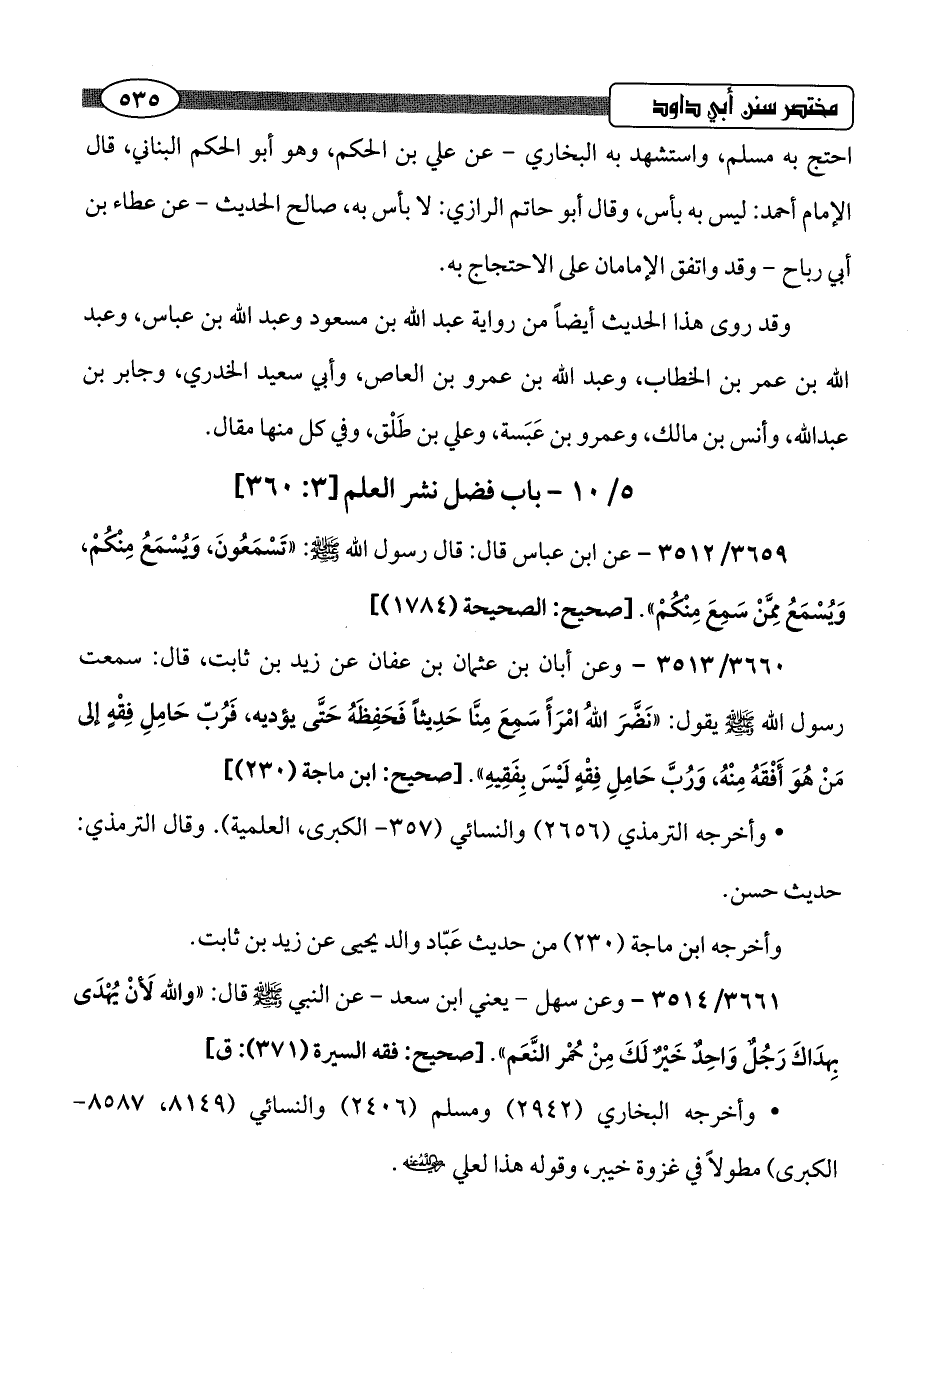 مختصر سنن أبي داود
٥٣٥
احتج به مسلم، واستشهد به البخاري - عن علي بن الحكم، وهو أبو الحكم البناني، قال
الإمام أحمد: ليس به بأس، وقال أبو حاتم الرازي: لا بأس به، صالح الحديث - عن عطاء بن
أبي رباح - وقد واتفق الإمامان على الاحتجاج به.
وقد روى هذا الحديث أيضاً من رواية عبد الله بن مسعود وعبد الله بن عباس، وعبد
الله بن عمر بن الخطاب، وعبد الله بن عمرو بن العاص، وأبي سعيد الخدري، وجابر بن
عبدالله، وأنس بن مالك، وعمرو بن عَبَسة، وعلي بن طَلْق، وفي كل منها مقال.
٥/ ١٠ - باب فضل نشر العلم [٣: ٣٦٠]
٣٥١٢/٣٦٥٩ - عن ابن عباس قال: قال رسول الله ﷺ: «تَسْمَعُونَ، وَيُسْمَعُ مِنْكُمْ،
وَيُسْمَعُ مِمَّنْ سَمِعَ مِنْكُمْ». [صحيح: الصحيحة (١٧٨٤)]
٣٥١٣/٣٦٦٠ - وعن أبان بن عثمان بن عفان عن زيد بن ثابت، قال: سمعت
رسول الله ﷺ يقول: «نَضَّرَ اللهُ امْرَأً سَمِعَ مِنَّا حَدِيثاً فَحَفِظَهُ حَتَّى يؤديه، فَرُبّ حَامِلِ فِقْهٍ إلى
مَنْ هُوَ أَفْقَهُ مِنْهُ، وَرُبَّ حَامِلِ فِقْهٍ لَيْسَ بِفَقِيهٍ». [صحيح: ابن ماجة (٢٣٠)]
• وأخرجه الترمذي (٢٦٥٦) والنسائي (٣٥٧- الكبرى، العلمية). وقال الترمذي:
حديث حسن.
وأخرجه ابن ماجة (٢٣٠) من حديث عَبّاد والد يحيى عن زيد بن ثابت.
٣٥١٤/٣٦٦١ - وعن سهل - يعني ابن سعد - عن النبي ﷺ قال: «والله لَأنْ يُهْدَى
بِهدَاكَ رَجُلٌ وَاحِدٌ خَيْرٌ لَكَ مِنْ حُمْر النَّعَم». [صحيح: فقه السيرة (٣٧١): ق]
• وأخرجه البخاري (٢٩٤٢) ومسلم (٢٤٠٦) والنسائي (٨١٤٩، ٨٥٨٧-
الكبرى) مطولاً في غزوة خيبر، وقوله هذا لعلي رضي الله عنه.